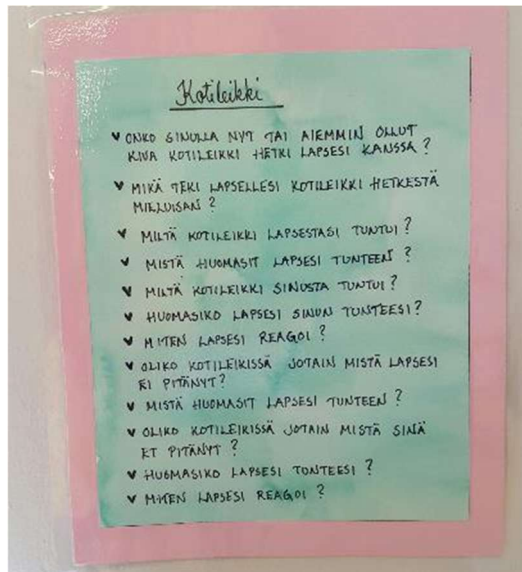 Kotileikki
♥ ONKO SINULLA NYT TAI AIEMMIN OLLUT
KIVA KOTILEIKKI HETKI LAPSESI KANSSA?
♥ MIKÄ TEKI LAPSELLESI KOTILEIKKI HETKESTÄ
MIELUISAN?
♥ MILTÄ KOTILEIKKI LAPSESTASI TUNTUI?
♥ MISTÄ HUOMASIT LAPSESI TUNTEEN?
♥ MILTÄ KOTILEIKKI SINUSTA TUNTUI?
♥ HUOMASIKO LAPSESI SINUN TUNTEESI?
♥ MITEN LAPSESI REAGOI?
♥ OLIKO KOTILEIKISSÄ JOTAIN MISTÄ LAPSESI
EI PITÄNYT?
♥ MISTÄ HUOMASIT LAPSESI TUNTEEN?
♥ OLIKO KOTILEIKISSÄ JOTAIN MISTÄ SINÄ
ET PITÄNYT?
♥ HUOMASIKO LAPSESI TUNTEESI?
♥ MITEN LAPSESI REAGOI?